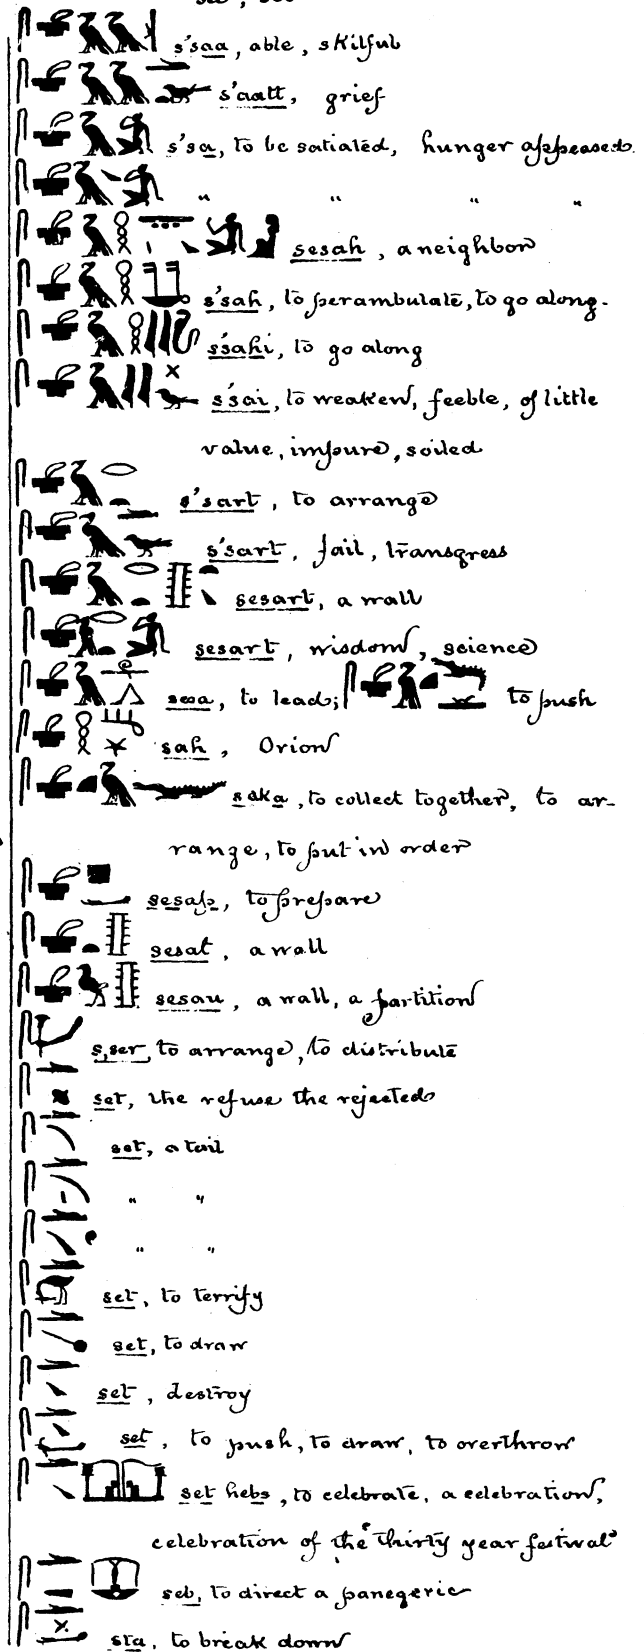 s'saa, able, skilful
s'aatt, grief
s'sa, to be satiated, hunger appeased.
" " " "
sesah, a neighbor
s'sah, to perambulate, to go along.
s'sahi, to go along
s'sai, to weaken, feeble, of little
value, impure, soiled
s'sart, to arrange
s'sart, fail, transgress
sesart, a wall
sesart, wisdom, science
sesa, to lead; to push
sah, Orion
saka, to collect together, to ar-
range, to put in order
sesap, to prepare
sesat, a wall
sesau, a wall, a partition
s,ser, to arrange, to distribute
set, the refuse the rejected
set, a tail
" "
" "
set, to terrify
set, to draw
set, destroy
set, to push, to draw, to overthrow
set hebs, to celebrate, a celebration,
celebration of the thirty year festival
seb, to direct a panegeric
sta, to break down